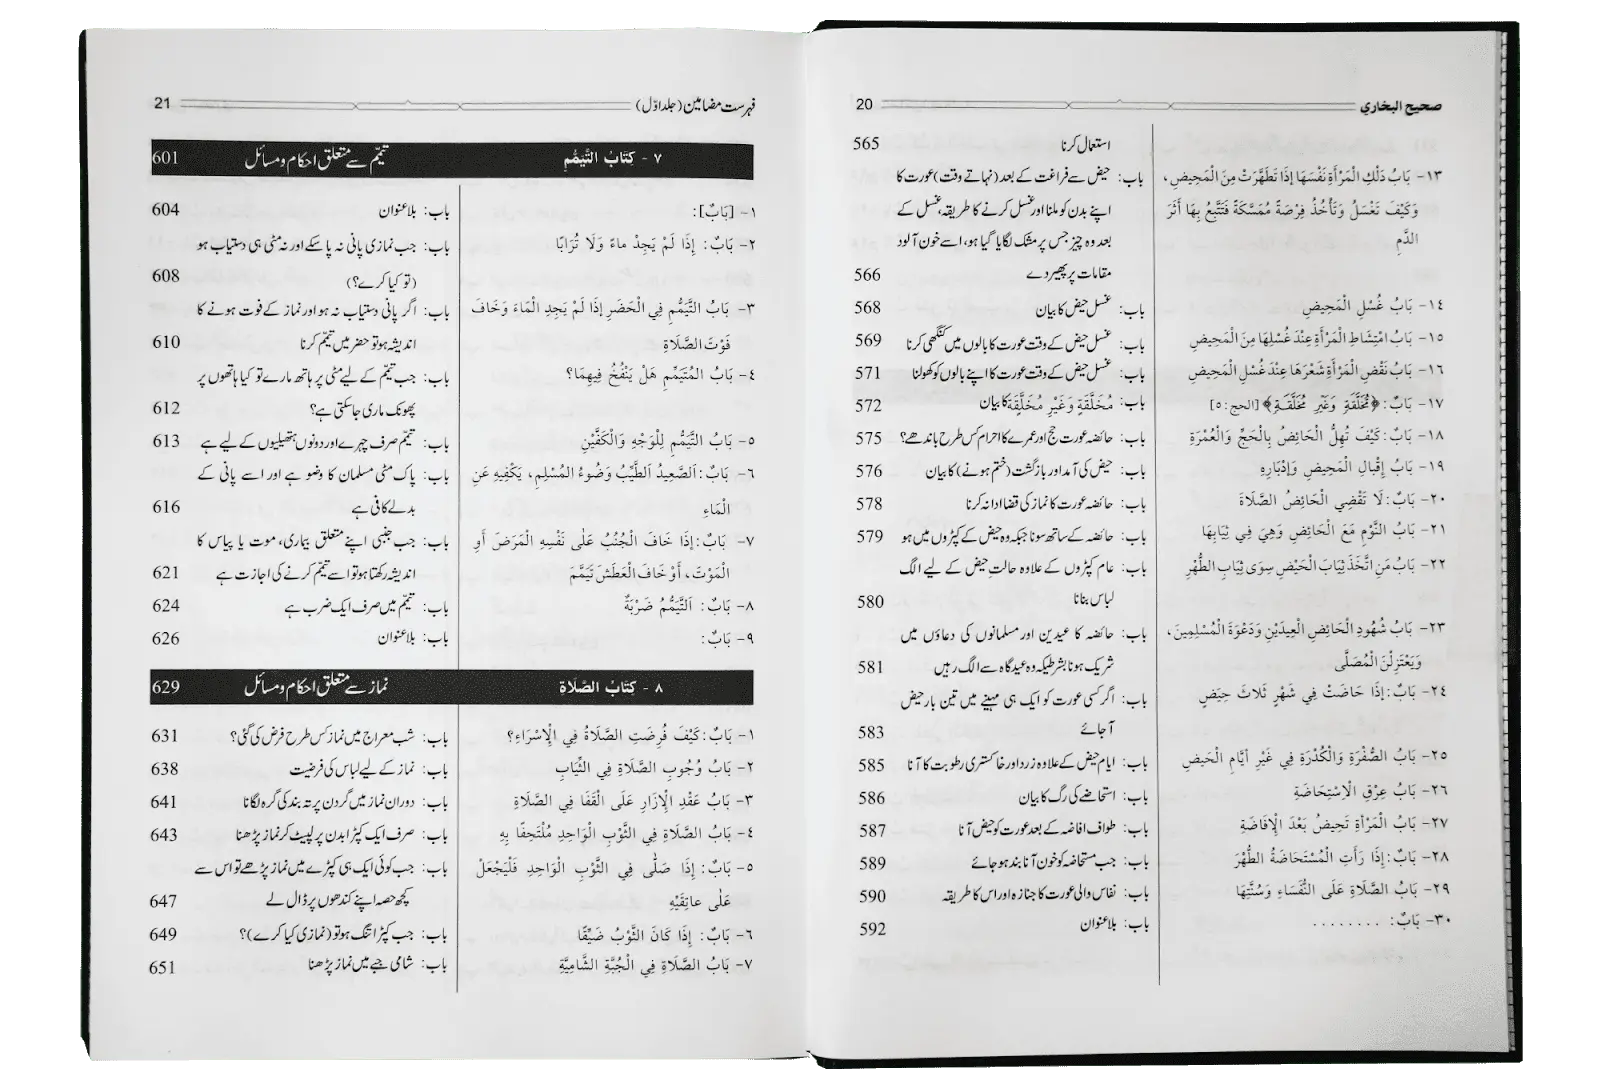 صحيح البخاري 20
استعمال کرنا 565
١٣- بَابُ دَلْكِ الْمَرْأَةِ نَفْسَهَا إِذَا تَطَهَّرَتْ مِنَ الْمَحِيضِ، باب: حیض سے فراغت کے بعد (نہاتے وقت) عورت کا
وَكَيْفَ تَغْسَلُ وَتَأْخُذُ فِرْصَةً مُمَسَّكَةً فَتَتَّبِعُ بِهَا أَثَرَ اپنے بدن کو ملنا اور غسل کرنے کا طریقہ، غسل کے
الدَّمِ بعد وہ چیز جس پر مشک لگایا گیا ہو، اسے خون آلود
مقامات پر پھیر دے 566
١٤- بَابُ غُسْلِ الْمَحِيضِ باب: غسل حیض کا بیان 568
١٥- بَابُ امْتِشَاطِ الْمَرْأَةِ عِنْدَ غُسْلِهَا مِنَ الْمَحِيضِ باب: غسل حیض کے وقت عورت کا بالوں میں کنگھی کرنا 569
١٦- بَابُ نَقْضِ الْمَرْأَةِ شَعَرَهَا عِنْدَ غُسْلِ الْمَحِيضِ باب: غسل حیض کے وقت عورت کا اپنے بالوں کو کھولنا 571
١٧- بَابٌ: ﴿مُخَلَّقَةٍ وَغَيْرِ مُخَلَّقَةٍ﴾ [الحج: ٥] باب: مُخَلَّقَةٍ وَغَيْرِ مُخَلَّقَةٍ کا بیان 572
١٨- بَابٌ: كَيْفَ تُهِلُّ الْحَائِضُ بِالْحَجِّ وَالْعُمْرَةِ باب: حائضہ عورت حج اور عمرے کا احرام کس طرح باندھے؟ 575
١٩- بَابُ إِقْبَالِ الْمَحِيضِ وَإِدْبَارِهِ باب: حیض کی آمد اور بازگشت (ختم ہونے) کا بیان 576
٢٠- بَابٌ: لَا تَقْضِي الْحَائِضُ الصَّلَاةَ باب: حائضہ عورت کا نماز کی قضا ادا نہ کرنا 578
٢١- بَابُ النَّوْمِ مَعَ الْحَائِضِ وَهِيَ فِي ثِيَابِهَا باب: حائضہ کے ساتھ سونا جبکہ وہ حیض کے کپڑوں میں ہو 579
٢٢- بَابُ مَنِ اتَّخَذَ ثِيَابَ الْحَيْضِ سِوَى ثِيَابِ الطُّهْرِ باب: عام کپڑوں کے علاوہ حالتِ حیض کے لیے الگ
لباس بنانا 580
٢٣- بَابُ شُهُودِ الْحَائِضِ الْعِيدَيْنِ وَدَعْوَةَ الْمُسْلِمِينَ، باب: حائضہ کا عیدین اور مسلمانوں کی دعاؤں میں
وَيَعْتَزِلْنَ الْمُصَلَّى شریک ہونا بشرطیکہ وہ عیدگاہ سے الگ رہیں 581
٢٤- بَابٌ: إِذَا حَاضَتْ فِي شَهْرٍ ثَلَاثَ حِيَضٍ باب: اگر کسی عورت کو ایک ہی مہینے میں تین بار حیض
آ جائے 583
٢٥- بَابُ الصُّفْرَةِ وَالْكُدْرَةِ فِي غَيْرِ أَيَّامِ الْحَيْضِ باب: ایام حیض کے علاوہ زرد اور خاکستری رطوبت کا آنا 585
٢٦- بَابُ عِرْقِ الْاِسْتِحَاضَةِ باب: استحاضے کی رگ کا بیان 586
٢٧- بَابُ الْمَرْأَةِ تَحِيضُ بَعْدَ الْإِفَاضَةِ باب: طواف افاضہ کے بعد عورت کو حیض آنا 587
٢٨- بَابٌ: إِذَا رَأَتِ الْمُسْتَحَاضَةُ الطُّهْرَ باب: جب مستحاضہ کو خون آنا بند ہو جائے 589
٢٩- بَابُ الصَّلَاةِ عَلَى النُّفَسَاءِ وَسُنَّتِهَا باب: نفاس والی عورت کا جنازہ اور اس کا طریقہ 590
٣٠- بَابٌ: ........ باب: بلا عنوان 592
فہرست مضامین (جلد اوّل) 21
٧ - كِتَابُ التَّيَمُّمِ تیمّم سے متعلق احکام و مسائل 601
١- [بَابٌ]: باب: بلا عنوان 604
٢- بَابٌ: إِذَا لَمْ يَجِدْ مَاءً وَلَا تُرَابًا باب: جب نمازی پانی نہ پا سکے اور نہ مٹی ہی دستیاب ہو
(تو کیا کرے؟) 608
٣- بَابُ التَّيَمُّمِ فِي الْحَضَرِ إِذَا لَمْ يَجِدِ الْمَاءَ وَخَافَ باب: اگر پانی دستیاب نہ ہو اور نماز کے فوت ہونے کا
فَوْتَ الصَّلَاةِ اندیشہ ہو تو حضر میں تیمّم کرنا 610
٤- بَابُ الْمُتَيَمِّمِ هَلْ يَنْفُخُ فِيهِمَا؟ باب: جب تیمّم کے لیے مٹی پر ہاتھ مارے تو کیا ہاتھوں پر
پھونک ماری جا سکتی ہے؟ 612
٥- بَابُ التَّيَمُّمِ لِلْوَجْهِ وَالْكَفَّيْنِ باب: تیمّم صرف چہرے اور دونوں ہتھیلیوں کے لیے ہے 613
٦- بَابٌ: اَلصَّعِيدُ الطَّيِّبُ وَضُوءُ الْمُسْلِمِ، يَكْفِيهِ عَنِ باب: پاک مٹی مسلمان کا وضو ہے اور اسے پانی کے
الْمَاءِ بدلے کافی ہے 616
٧- بَابٌ: إِذَا خَافَ الْجُنُبُ عَلٰى نَفْسِهِ الْمَرَضَ أَوِ باب: جب جنبی اپنے متعلق بیماری، موت یا پیاس کا
الْمَوْتَ، أَوْ خَافَ الْعَطَشَ تَيَمَّمَ اندیشہ رکھتا ہو تو اسے تیمّم کرنے کی اجازت ہے 621
٨- بَابٌ: اَلتَّيَمُّمُ ضَرْبَةٌ باب: تیمّم میں صرف ایک ضرب ہے 624
٩- بَابٌ: باب: بلا عنوان 626
٨ - كِتَابُ الصَّلَاةِ نماز سے متعلق احکام و مسائل 629
١- بَابٌ: كَيْفَ فُرِضَتِ الصَّلَاةُ فِي الْإِسْرَاءِ؟ باب: شب معراج میں نماز کس طرح فرض کی گئی؟ 631
٢- بَابُ وُجُوبِ الصَّلَاةِ فِي الثِّيَابِ باب: نماز کے لیے لباس کی فرضیت 638
٣- بَابُ عَقْدِ الْإِزَارِ عَلَى الْقَفَا فِي الصَّلَاةِ باب: دوران نماز میں گردن پر تہ بند کی گرہ لگانا 641
٤- بَابُ الصَّلَاةِ فِي الثَّوْبِ الْوَاحِدِ مُلْتَحِفًا بِهِ باب: صرف ایک کپڑا بدن پر لپیٹ کر نماز پڑھنا 643
٥- بَابٌ: إِذَا صَلّٰى فِي الثَّوْبِ الْوَاحِدِ فَلْيَجْعَلْ باب: جب کوئی ایک ہی کپڑے میں نماز پڑھے تو اس سے
عَلٰى عَاتِقَيْهِ کچھ حصہ اپنے کندھوں پر ڈال لے 647
٦- بَابٌ: إِذَا كَانَ الثَّوْبُ ضَيِّقًا باب: جب کپڑا تنگ ہو تو (نمازی کیا کرے)؟ 649
٧- بَابُ الصَّلَاةِ فِي الْجُبَّةِ الشَّامِيَّةِ باب: شامی جبے میں نماز پڑھنا 651